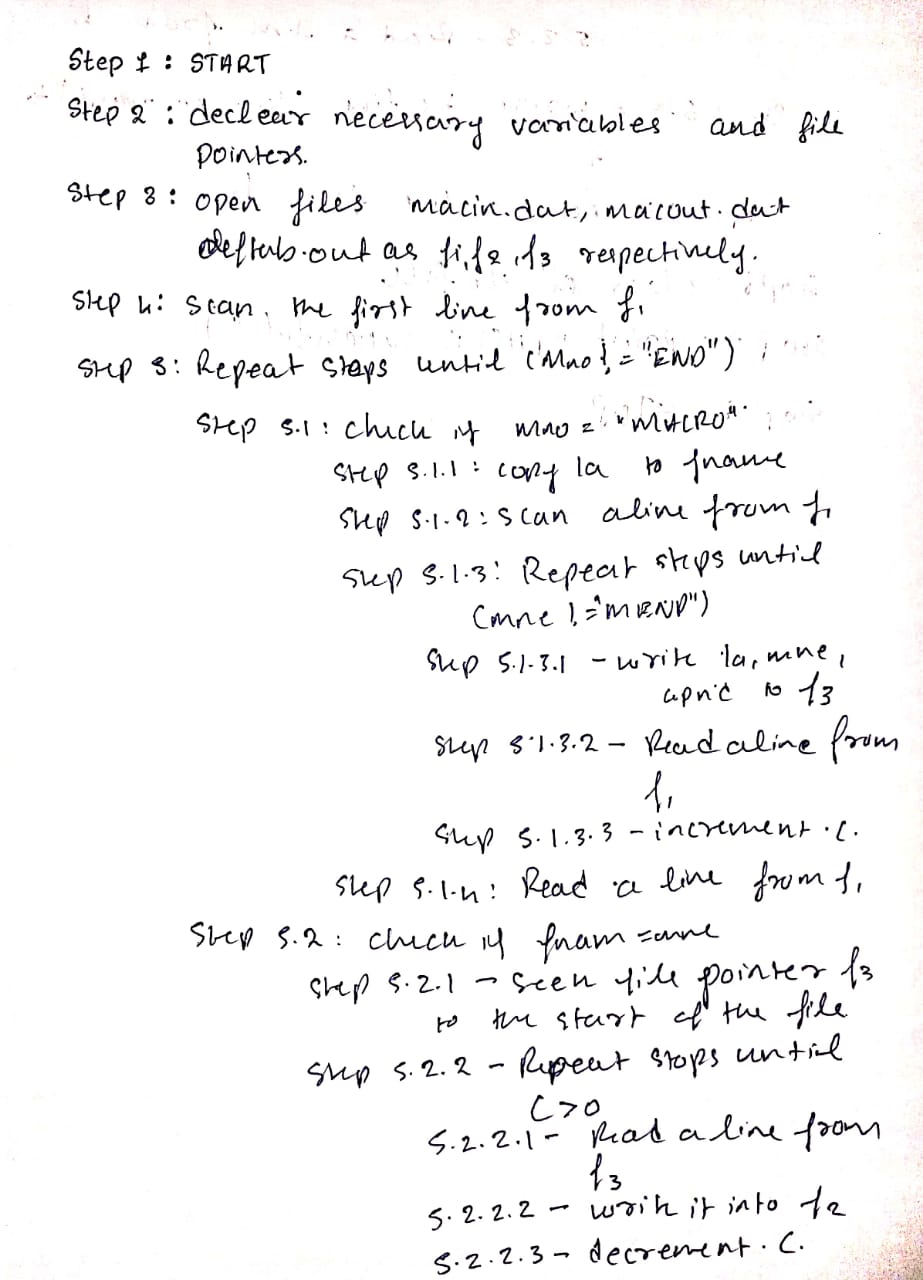 Step 1 : START
Step 2 : declear necessary variables and file
pointers.
Step 3 : open files macin.dat, macout.dat
deftab.out as f1, f2, f3 respectively.
Step 4: Scan the first line from f1
Step 5: Repeat Steps until (mno != "END")
Step 5.1 : check if mno = "MACRO"
Step 5.1.1 : copy la to fname
Step 5.1.2 : Scan a line from f1
Step 5.1.3: Repeat steps until
(mne != "MEND")
Step 5.1.3.1 - write la, mne,
to f3
Step 5.1.3.2 - Read a line from
f1
Step 5.1.3.3 - increment c.
Step 5.1.4: Read a line from f1
Step 5.2 : check if fnam = mne
Step 5.2.1 - Seek file pointer f3
to the start of the file
Step 5.2.2 - Repeat Steps until
C>0
5.2.2.1 - Read a line from
f3
5.2.2.2 - write it into f2
5.2.2.3 - decrement. C.